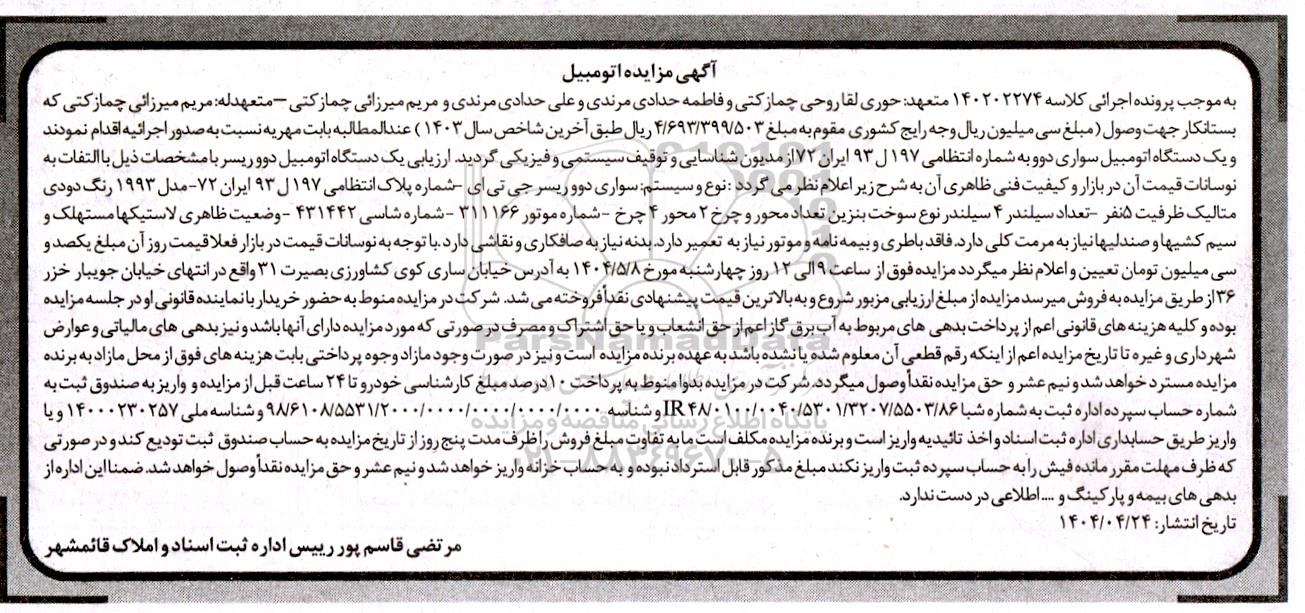 آگهی مزایده اتومبیل
به موجب پرونده اجرائی کلاسه ۱۴۰۲۰۲۲۷۴ متعهد: حوری لقا روحی چمازکتی و فاطمه حدادی مرندی و علی حدادی مرندی و مریم میرزائی چمازکتی –متعهدله: مریم میرزائی چمازکتی که
بستانکار جهت وصول (مبلغ سی میلیون ریال وجه رایج کشوری مقوم به مبلغ ۴/۶۹۳/۳۹۹/۵۰۳ ریال طبق آخرین شاخص سال ۱۴۰۳) عندالمطالبه بابت مهریه نسبت به صدور اجرائیه اقدام نمودند
و یک دستگاه اتومبیل سواری دوو به شماره انتظامی ۱۹۷ ل ۹۳ ایران ۷۲ از مدیون شناسایی و توقیف سیستمی و فیزیکی گردید. ارزیابی یک دستگاه اتومبیل دوو ریسر با مشخصات ذیل با التفات به
نوسانات قیمت آن در بازار و کیفیت فنی ظاهری آن به شرح زیر اعلام نظر می گردد :نوع و سیستم: سواری دوو ریسر جی تی ای -شماره پلاک انتظامی ۱۹۷ ل ۹۳ ایران ۷۲-مدل ۱۹۹۳ رنگ دودی
متالیک ظرفیت ۵نفر -تعداد سیلندر ۴ سیلندر نوع سوخت بنزین تعداد محور و چرخ ۲ محور ۴ چرخ -شماره موتور ۳۱۱۱۶۶ -شماره شاسی ۴۳۱۴۴۲ -وضعیت ظاهری لاستیکها مستهلک و
سیم کشیها و صندلیها نیاز به مرمت کلی دارد. فاقد باطری و بیمه نامه و موتور نیاز به تعمیر دارد. بدنه نیاز به صافکاری و نقاشی دارد .با توجه به نوسانات قیمت در بازار فعلا قیمت روز آن مبلغ یکصد و
سی میلیون تومان تعیین و اعلام نظر میگردد مزایده فوق از ساعت ۹ الی ۱۲ روز چهارشنبه مورخ ۱۴۰۴/۵/۸ به آدرس خیابان ساری کوی کشاورزی بصیرت ۳۱ واقع در انتهای خیابان جویبار خزر
۳۶ از طریق مزایده به فروش میرسد مزایده از مبلغ ارزیابی مزبور شروع و به بالاترین قیمت پیشنهادی نقداً فروخته می شد. شرکت در مزایده منوط به حضور خریدار یا نماینده قانونی او در جلسه مزایده
بوده و کلیه هزینه های قانونی اعم از پرداخت بدهی های مربوط به آب برق گاز اعم از حق انشعاب و یا حق اشتراک و مصرف در صورتی که مورد مزایده دارای آنها باشد و نیز بدهی های مالیاتی و عوارض
شهرداری و غیره تا تاریخ مزایده اعم از اینکه رقم قطعی آن معلوم شده یا نشده باشد به عهده برنده مزایده است و نیز در صورت وجود مازاد وجوه پرداختی بابت هزینه های فوق از محل مازاد به برنده
مزایده مسترد خواهد شد و نیم عشر و حق مزایده نقداً وصول میگردد. شرکت در مزایده بدوا منوط به پرداخت ۱۰ درصد مبلغ کارشناسی خودرو تا ۲۴ ساعت قبل از مزایده و واریز به صندوق ثبت به
شماره حساب سپرده اداره ثبت به شماره شبا IR ۴۸/۰۱۰۰/۰۰۴۰/۵۳۰۱/۳۲۰۷/۵۵۰۳/۸۶ و شناسه ۹۸/۶۱۰۸/۵۵۳۱/۲۰۰۰/۰۰۰۰/۰۰۰۰/۰۰۰۰/۰۰۰۰ و شناسه ملی ۱۴۰۰۰۲۳۰۲۵۷ و یا
واریز طریق حسابداری اداره ثبت اسناد و اخذ تائیدیه واریز است و برنده مزایده مکلف است ما به تفاوت مبلغ فروش را ظرف مدت پنج روز از تاریخ مزایده به حساب صندوق ثبت تودیع کند و در صورتی
که ظرف مهلت مقرر مانده فیش را به حساب سپرده ثبت واریز نکند مبلغ مذکور قابل استرداد نبوده و به حساب خزانه واریز خواهد شد و نیم عشر و حق مزایده نقداً وصول خواهد شد. ضمنا این اداره از
بدهی های بیمه و پارکینگ و .... اطلاعی در دست ندارد.
تاریخ انتشار: ۱۴۰۴/۰۴/۲۴
مرتضی قاسم پور رییس اداره ثبت اسناد و املاک قائمشهر
ParsNamadData
پایگاه اطلاع رسانی مناقصه و مزایده
۰۲۱-۸۸۳۴۹۶۷۰-۵